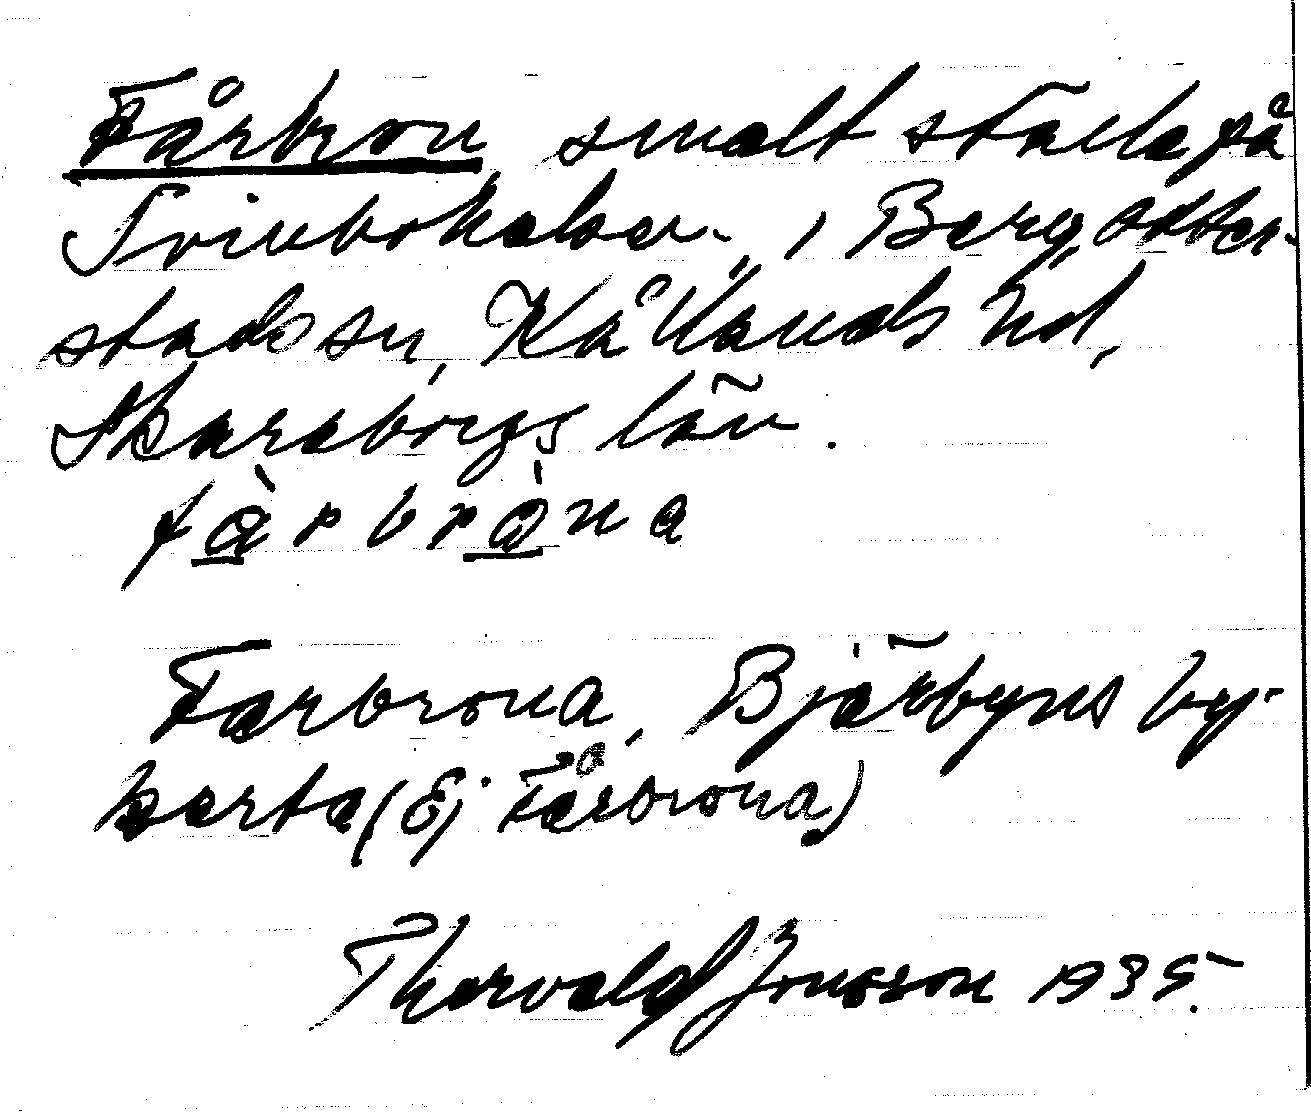 Fårbron smalt ställe på
i Berg, Otter-
stads sn, Kållands hd,
Skaraborgs län.
fàrbràna
Farbrona, Bjärbyns by-
karta (Ej Fårbrona)
Thorvald Jonsson 1935.